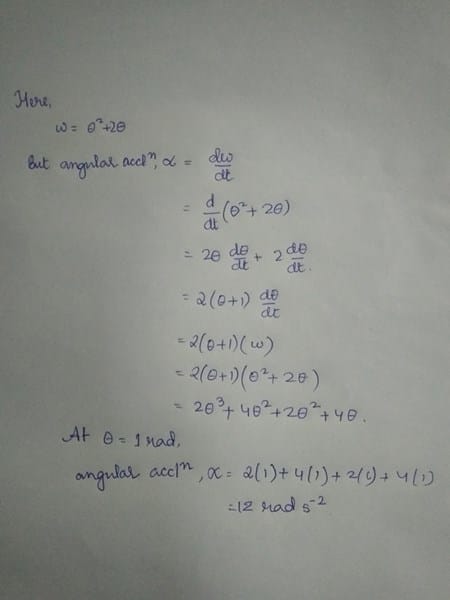 Here,
ω = θ²+2θ
But angular acclⁿ, α = dω/dt
= d/dt (θ² + 2θ)
= 2θ dθ/dt + 2 dθ/dt.
= 2(θ+1) dθ/dt
= 2(θ+1)(ω)
= 2(θ+1)(θ² + 2θ)
= 2θ³ + 4θ² + 2θ² + 4θ.
At θ = 1 rad,
angular acclⁿ, α = 2(1) + 4(1) + 2(1) + 4(1)
= 12 rad s⁻²